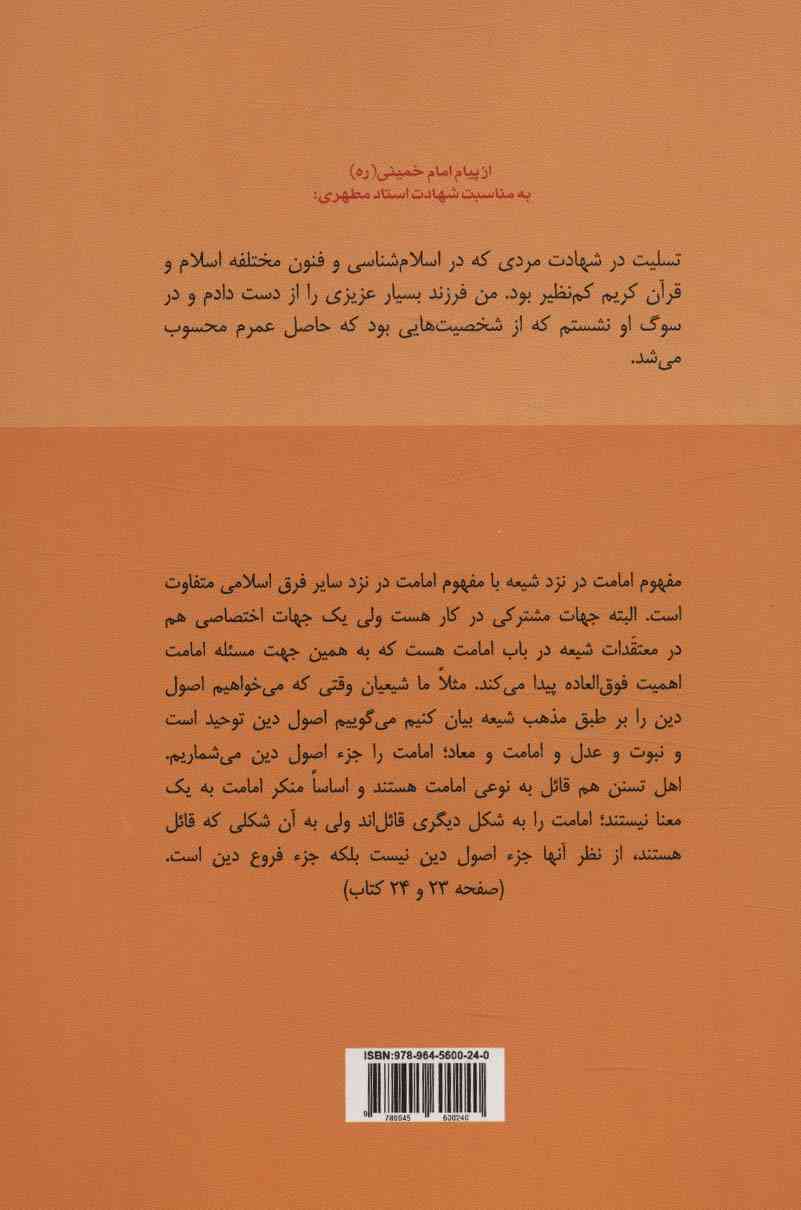 از پیام امام خمینی(ره)
به مناسبت شهادت استاد مطهری:
تسلیت در شهادت مردی که در اسلام‌شناسی و فنون مختلفه اسلام و
قرآن کریم کم‌نظیر بود. من فرزند بسیار عزیزی را از دست دادم و در
سوگ او نشستم که از شخصیت‌هایی بود که حاصل عمرم محسوب
می‌شد.
مفهوم امامت در نزد شیعه با مفهوم امامت در نزد سایر فرق اسلامی متفاوت
است. البته جهات مشترکی در کار هست ولی یک جهات اختصاصی هم
در معتقَدات شیعه در باب امامت هست که به همین جهت مسئله امامت
اهمیت فوق‌العاده پیدا می‌کند. مثلاً ما شیعیان وقتی که می‌خواهیم اصول
دین را بر طبق مذهب شیعه بیان کنیم می‌گوییم اصول دین توحید است
و نبوت و عدل و امامت و معاد؛ امامت را جزء اصول دین می‌شماریم.
اهل تسنن هم قائل به نوعی امامت هستند و اساساً منکر امامت به یک
معنا نیستند؛ امامت را به شکل دیگری قائل‌اند ولی به آن شکلی که قائل
هستند، از نظر آنها جزء اصول دین نیست بلکه جزء فروع دین است.
(صفحه ۲۳ و ۲۴ کتاب)
ISBN:978-964-5600-24-0
9 789645 600240